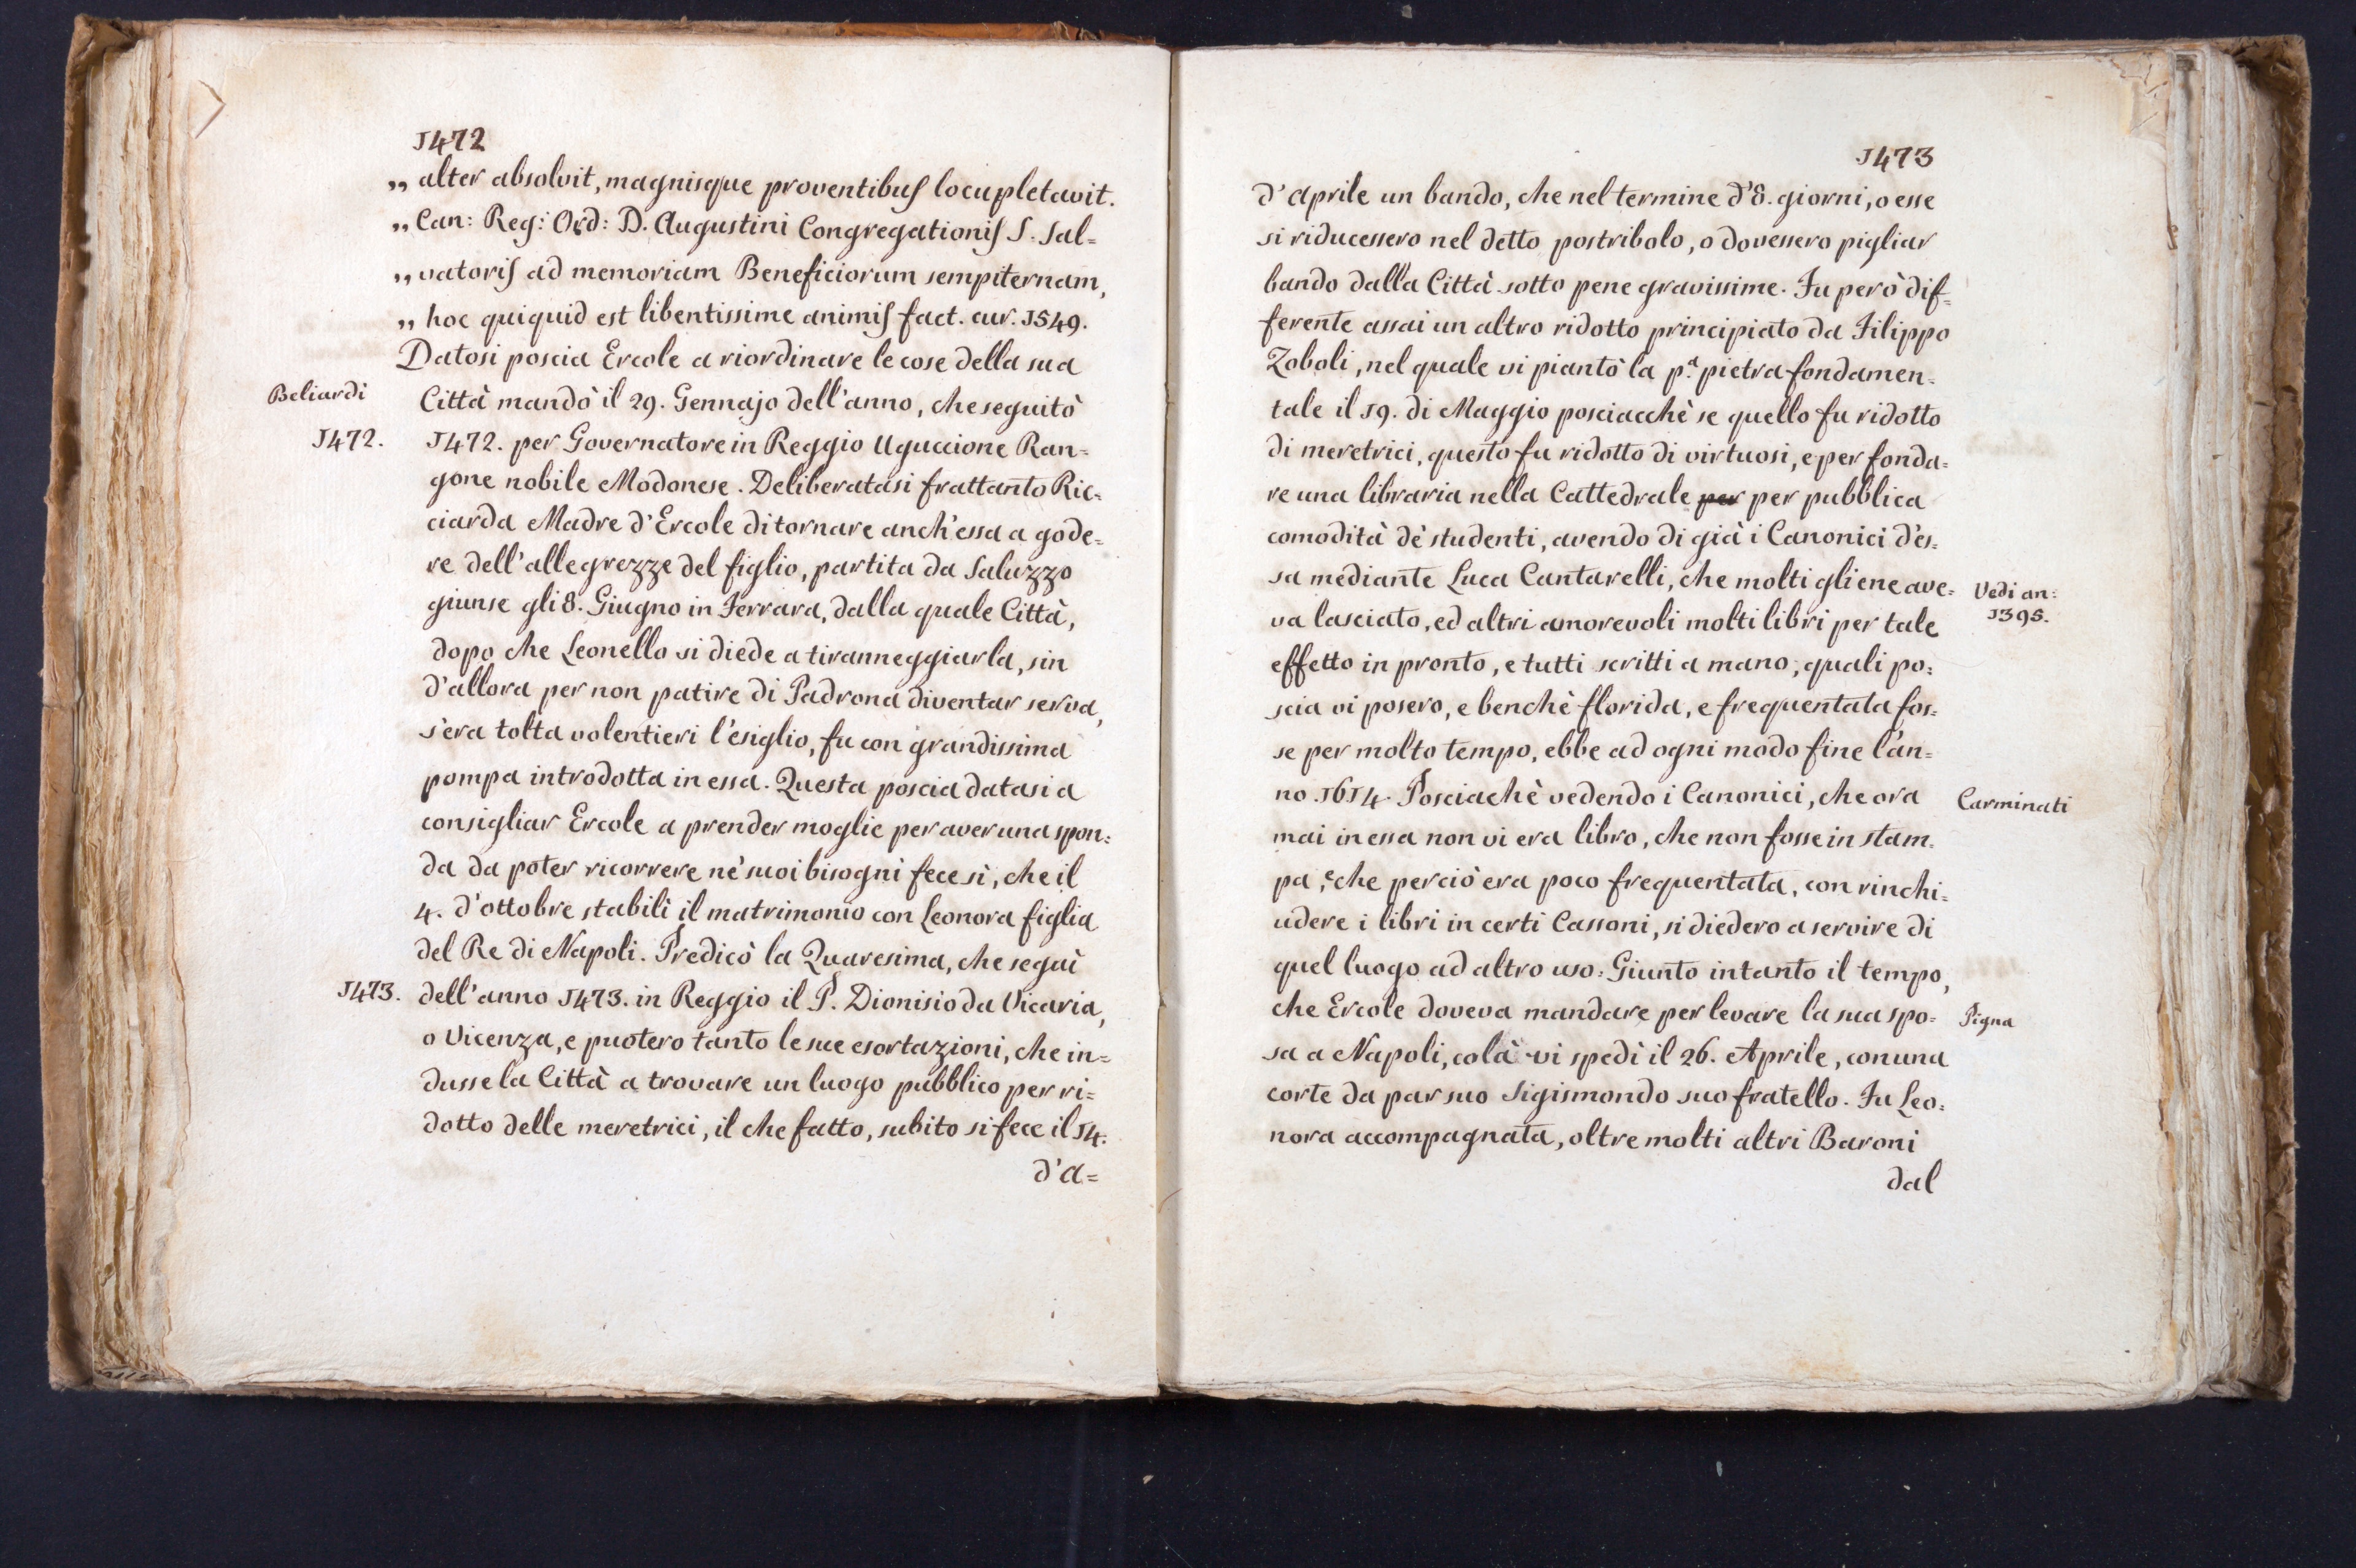 1472
„ alter absolvit, magnisque proventibus locupletavit.
„ Can: Reg: Ord: D. Augustini Congregationis S. Sal=
„ vatoris ad memoriam Beneficiorum sempiternam,
„ hoc quiquid est libentissime animis fact. cur. 1549.
Datosi poscia Ercole a riordinare le cose della sua
Beliardi
Città mandò il 29. Gennajo dell'anno, che seguitò
1472.
1472. per Governatore in Reggio Uguccione Ran=
gone nobile Modonese. Deliberatasi frattanto Ric=
ciarda Madre d'Ercole di tornare anch'essa a gode=
re dell'allegrezze del figlio, partita da Saluzzo
giunse gli 8. Giugno in Ferrara, dalla quale Città,
dopo che Leonello si diede a tiranneggiarla, sin
d'allora per non patire di Padrona diventar serva,
s'era tolta volentieri l'esiglio, fu con grandissima
pompa introdotta in essa. Questa poscia datasi a
consigliar Ercole a prender moglie per aver una spon=
da da poter ricorrere ne' suoi bisogni fece sì, che il
4. d'ottobre stabilì il matrimonio con Leonora figlia
del Re di Napoli. Predicò la Quaresima, che seguì
1473.
dell'anno 1473. in Reggio il P. Dionisio da Vicaria,
o Vicenza, e puotero tanto le sue esortazioni, che in=
dusse la Città a trovare un luogo pubblico per ri=
dotto delle meretrici, il che fatto, subito si fece il 14.
d'a=
1473
d'Aprile un bando, che nel termine d'8. giorni, o esse
si riducessero nel detto postribolo, o dovessero pigliar
bando dalla Città sotto pene gravissime. Fu però dif=
ferente assai un altro ridotto principiato da Filippo
Zoboli, nel quale vi piantò la p.a pietra fondamen=
tale il 19. di Maggio posciacchè se quello fu ridotto
di meretrici, questo fu ridotto di virtuosi, e per fonda=
re una libraria nella Cattedrale per per pubblica
comodità de' studenti, avendo di già i Canonici d'es=
sa mediante Luca Cantarelli, che molti gliene ave=
Vedi an:
1395.
va lasciato, ed altri amorevoli molti libri per tale
effetto in pronto, e tutti scritti a mano, quali po=
scia vi posero, e benchè florida, e frequentata fos=
se per molto tempo, ebbe ad ogni modo fine l'an=
no 1614. Posciachè vedendo i Canonici, che ora
Carminati
mai in essa non vi era libro, che non fosse in stam=
pa, e che perciò era poco frequentata, con rinchi=
udere i libri in certi Cassoni, si diedero a servire di
quel luogo ad altro uso. Giunto intanto il tempo,
che Ercole doveva mandare per levare la sua spo=
Pigna
sa a Napoli, colà vi spedì il 26. Aprile, con una
corte da par suo Sigismondo suo fratello. Fu Leo=
nora accompagnata, oltre molti altri Baroni
dal